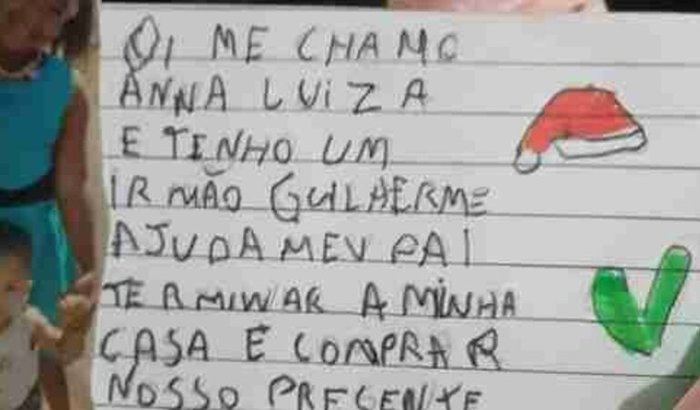 OI ME CHAMO
ANNA LUIZA
E TENHO UM
IRMÃO GUILHERME
AJUDA MEU PAI
TERMINAR A MINHA
CASA E COMPRAR
NOSSO PRECENTE